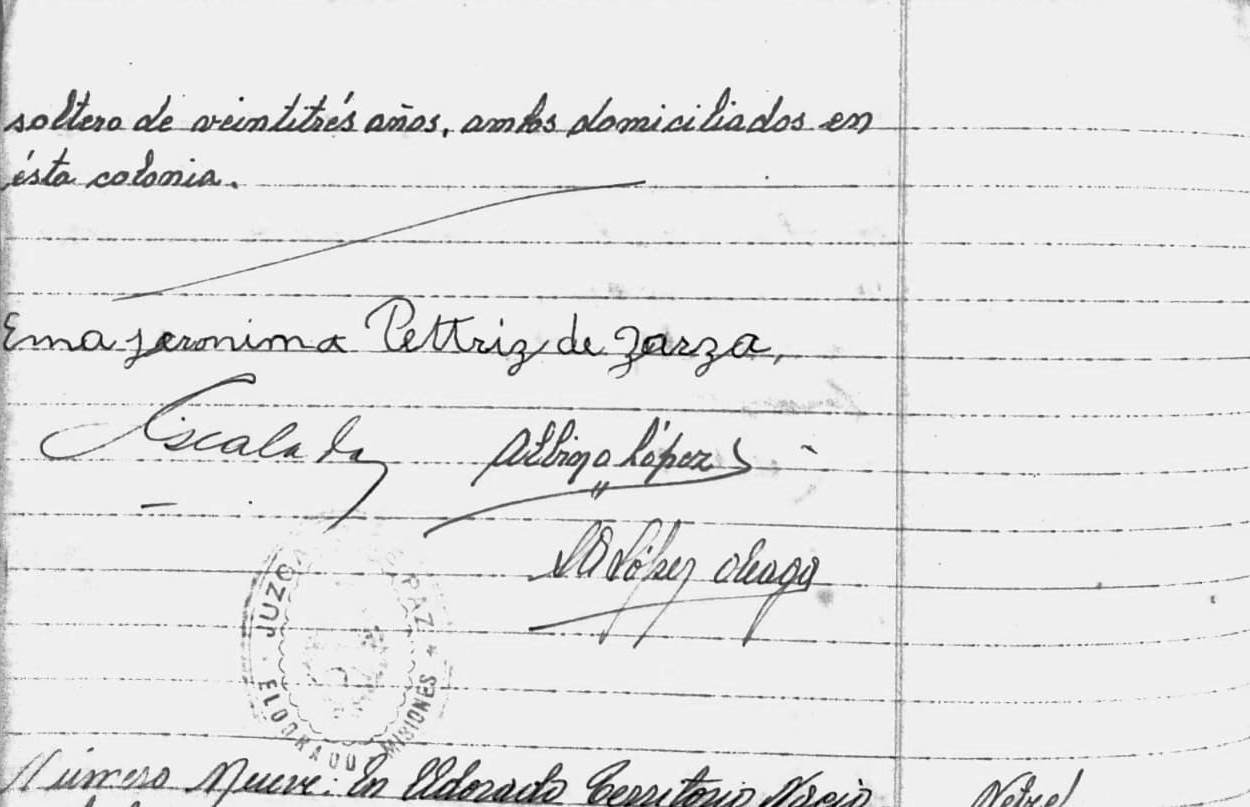 soltero de veintitrés años, ambos domiciliados en
ésta colonia.
Ema Jeronima Pettriz de Zarza,
Escalada
Albino López
López
JUZGADO PAZ
ELDORADO MISIONES
Número Nueve: En Eldorado Territorio Nacio